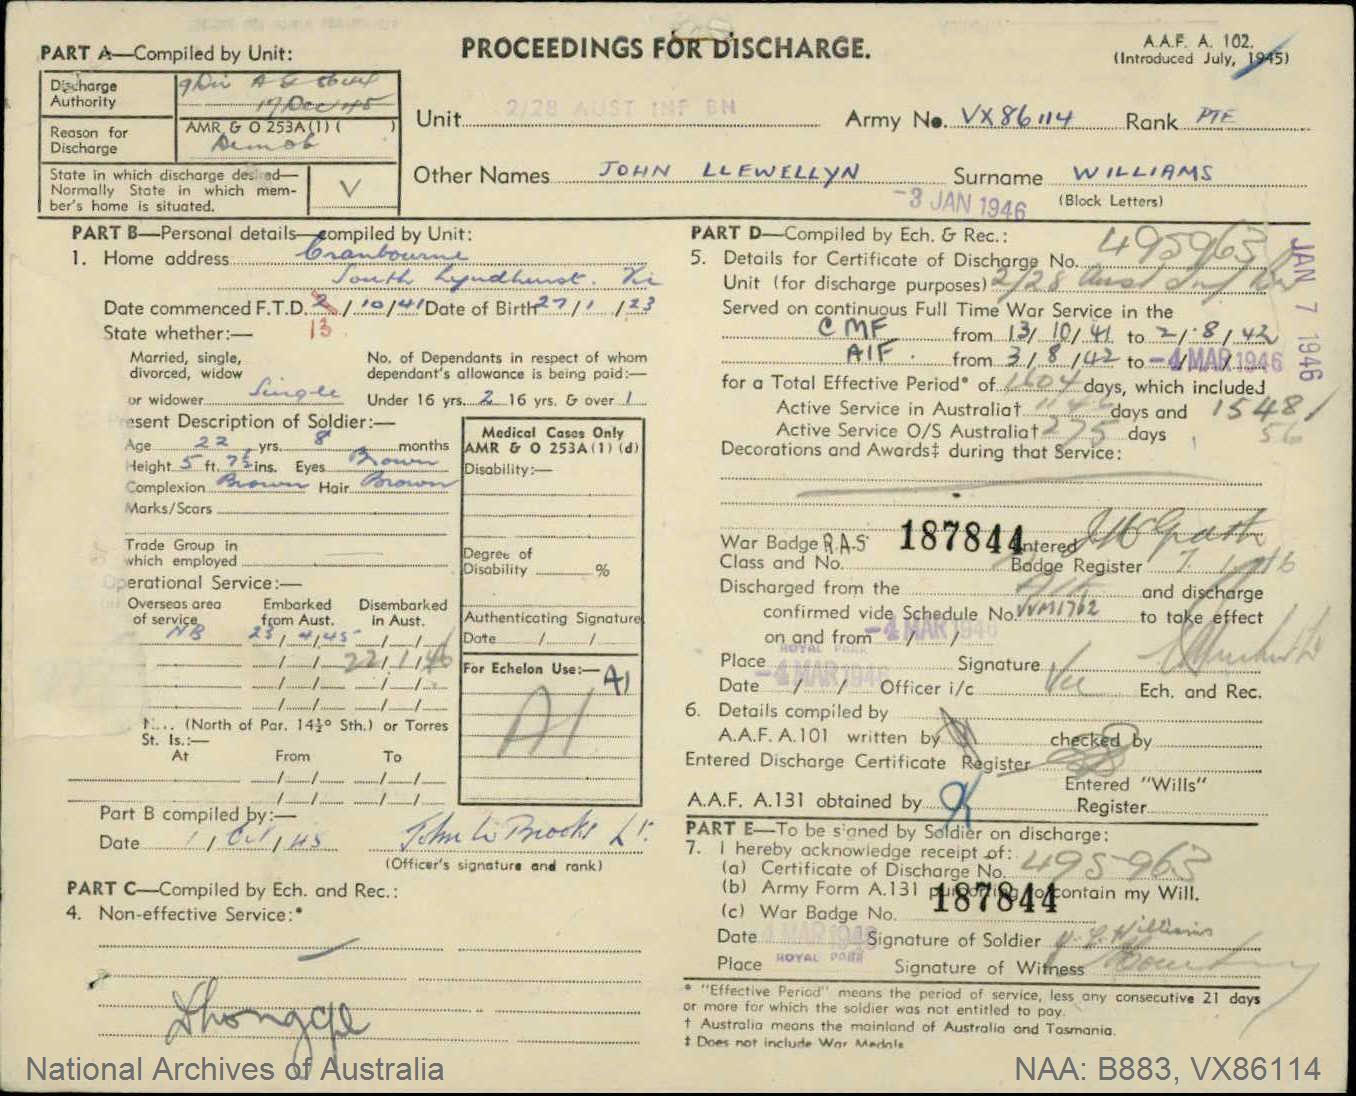 PART A—Compiled by Unit:
PROCEEDINGS FOR DISCHARGE.
A.A.F. A. 102.
(Introduced July, 1945)
Discharge Authority
17 Dec 45
Reason for Discharge
AMR & O 253A(1) ( )
Demob
State in which discharge desired—
Normally State in which mem-
ber's home is situated.
V
Unit 2/28 AUST INF BN Army No. VX86114 Rank PTE
Other Names JOHN LLEWELLYN Surname WILLIAMS
(Block Letters)
-3 JAN 1946
PART B—Personal details—compiled by Unit:
1. Home address Cranbourne
South Lyndhurst. Vic
Date commenced F.T.D. 2/10/41 Date of Birth 27/1/23
13
State whether:—
Married, single,
divorced, widow
or widower Single
No. of Dependants in respect of whom
dependant's allowance is being paid:—
Under 16 yrs. 2 16 yrs. & over 1
Present Description of Soldier:—
Age 22 yrs. 8 months
Height 5 ft. 7½ ins. Eyes Brown
Complexion Brown Hair Brown
Marks/Scars
Trade Group in
which employed
Operational Service:—
Overseas area
of service
Embarked
from Aust.
Disembarked
in Aust.
NB 23/4/45
22/1/46
(North of Par. 14½° Sth.) or Torres
St. Is.:—
At From To
Part B compiled by:—
Date 1/Oct/45 John W Brooks Lt.
(Officer's signature and rank)
Medical Cases Only
AMR & O 253A(1)(d)
Disability:—
Degree of
Disability %
Authenticating Signature
Date / /
For Echelon Use:— A1
A1
PART C—Compiled by Ech. and Rec.:
4. Non-effective Service:*
PART D—Compiled by Ech. & Rec.:
5. Details for Certificate of Discharge No. 495963
JAN 7 1946
Unit (for discharge purposes) 2/28 Aust Inf Bn
Served on continuous Full Time War Service in the
CMF from 13/10/41 to 2/8/42
AIF from 3/8/42 to -4 MAR 1946
for a Total Effective Period* of 1604 days, which included
Active Service in Australia† days and 1548
Active Service O/S Australia† 275 days 56
Decorations and Awards‡ during that Service:
War Badge R.A.S 187844 Entered
Class and No. Badge Register 7 1 46
Discharged from the AIF and discharge
confirmed vide Schedule No. VVM1762 to take effect
on and from -4 MAR 1946
Place ROYAL PARK Signature
Date -4 MAR 1946 Officer i/c Vic Ech. and Rec.
6. Details compiled by
A.A.F. A.101 written by checked by
Entered Discharge Certificate Register
Entered "Wills"
A.A.F. A.131 obtained by Register
PART E—To be signed by Soldier on discharge:
7. I hereby acknowledge receipt of:
(a) Certificate of Discharge No. 495963
(b) Army Form A.131 purporting to contain my Will.
(c) War Badge No. 187844
Date 4 MAR 1946 Signature of Soldier J. L. Williams
Place ROYAL PARK Signature of Witness
* "Effective Period" means the period of service, less any consecutive 21 days
or more for which the soldier was not entitled to pay.
† Australia means the mainland of Australia and Tasmania.
‡ Does not include War Medals
National Archives of Australia
NAA: B883, VX86114